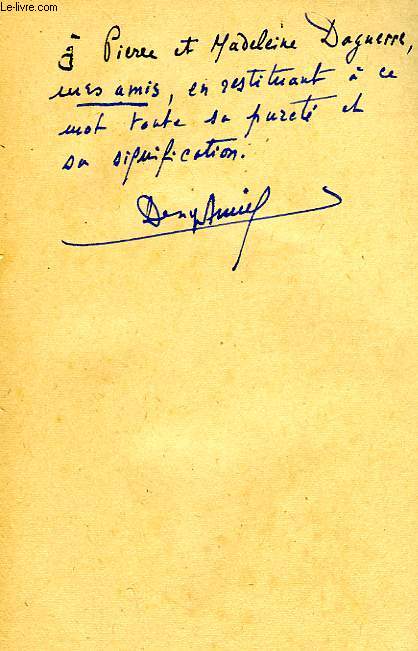 Le-livre.com
à Pierre et Madeleine Daguerre,
mes amis, en restituant à ce
mot toute sa pureté et
sa signification.
Denys Amiel